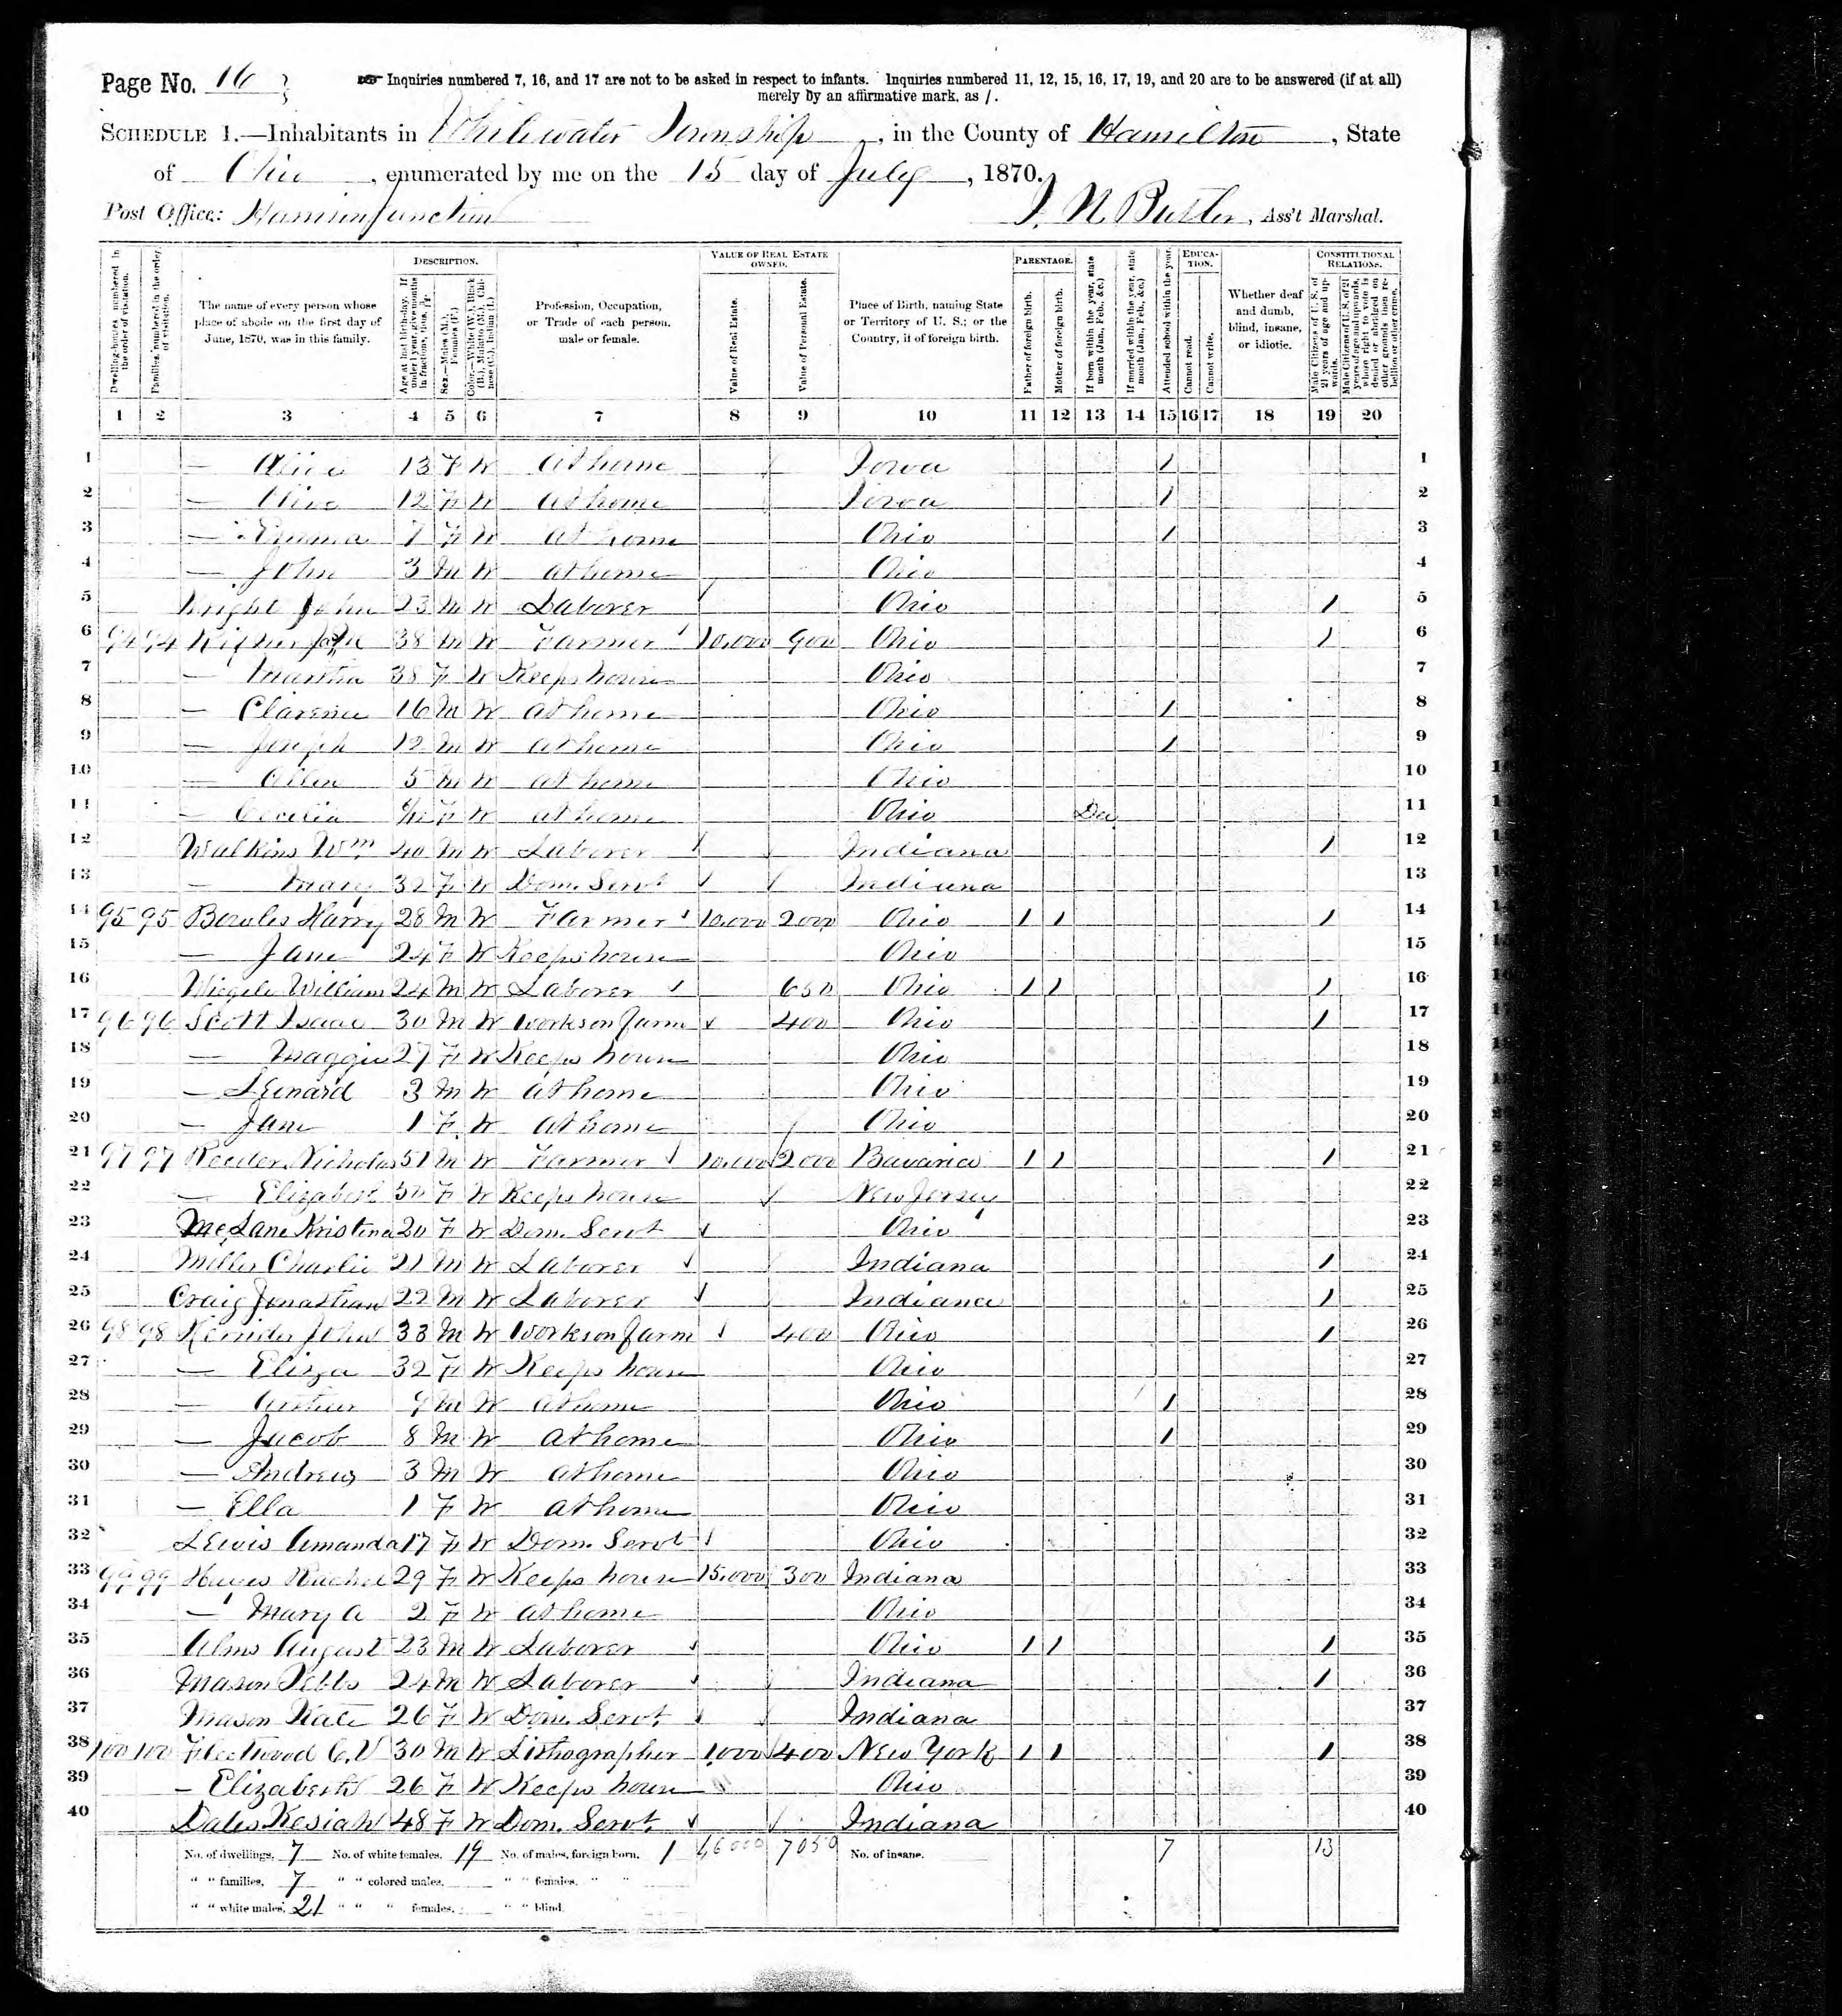 Page No. 16
Inquiries numbered 7, 16, and 17 are not to be asked in respect to infants. Inquiries numbered 11, 12, 15, 16, 17, 19, and 20 are to be answered (if at all)
merely by an affirmative mark, as /.
SCHEDULE 1.—Inhabitants in Whitewater Township, in the County of Hamilton, State
of Ohio, enumerated by me on the 15 day of July, 1870.
Post Office: Junction
J. N. Butler, Ass't Marshal.
DESCRIPTION. VALUE OF REAL ESTATE OWNED. PARENTAGE. EDUCATION. CONSTITUTIONAL RELATIONS.
Dwelling-houses, numbered in the order of visitation.
Families, numbered in the order of visitation.
The name of every person whose place of abode on the first day of June, 1870, was in this family.
Age at last birth-day. If under 1 year, give months in fractions, thus, 
Sex.—Males (M.), Females (F.)
Color.—White (W.), Black (B.), Mulatto (M.), Chinese (C.), Indian (I.)
Profession, Occupation, or Trade of each person, male or female.
Value of Real Estate.
Value of Personal Estate.
Place of Birth, naming State or Territory of U. S.; or the Country, if of foreign birth.
Father of foreign birth.
Mother of foreign birth.
If born within the year, state month (Jan., Feb., &c.)
If married within the year, state month (Jan., Feb., &c.)
Attended school within the year.
Cannot read.
Cannot write.
Whether deaf and dumb, blind, insane, or idiotic.
Male Citizens of U. S. of 21 years of age and upwards.
Male Citizens of U. S. of 21 years of age and upwards, whose right to vote is denied or abridged on other grounds than rebellion or other crime.
1 2 3 4 5 6 7 8 9 10 11 12 13 14 15 16 17 18 19 20
1 — Alice 13 F W At home Iowa / 1
2 — Olive 12 F W At home Iowa / 2
3 — Emma 7 F W At home Ohio / 3
4 — John 3 M W At home Ohio 4
5 Wright John 23 M W Laborer Ohio / 5
6 94 94 John 38 M W Farmer 10,000 900 Ohio / 6
7 — Martha 38 F W Keeps house Ohio 7
8 — Clarence 16 M W At home Ohio / 8
9 — Joseph 12 M W At home Ohio / 9
10 — Allen 5 M W At home Ohio 10
11 — Cecelia F W At home Ohio Dec 11
12 Watkins Wm 40 M W Laborer Indiana / 12
13 — Mary 32 F W Dom. Servt Indiana 13
14 95 95 Bowles Harry 28 M W Farmer 10,000 2000 Ohio / / / 14
15 — Jane 24 F W Keeps house Ohio 15
16 William 24 M W Laborer 650 Ohio / / / 16
17 96 96 Scott Isaac 30 M W Works on farm 400 Ohio / 17
18 — Maggie 27 F W Keeps house Ohio 18
19 — Leonard 3 M W At home Ohio 19
20 — Jane 1 F W At home Ohio 20
21 97 97 Reeder Nicholas 51 M W Farmer 10,000 2000 Bavaria / / / 21
22 — Elizabeth 50 F W Keeps house New Jersey 22
23 McLane Kristena 20 F W Dom. Servt Ohio 23
24 Miller Charlie 21 M W Laborer Indiana / 24
25 Craig Jonathan 22 M W Laborer Indiana / 25
26 98 98 John 33 M W Works on farm 400 Ohio / 26
27 — Eliza 32 F W Keeps house Ohio 27
28 — Arthur 9 M W At home Ohio / 28
29 — Jacob 8 M W At home Ohio / 29
30 — Andrew 3 M W At home Ohio 30
31 — Ella 1 F W At home Ohio 31
32 Lewis Amanda 17 F W Dom. Servt Ohio 32
33 99 99 Hayes Rachel 29 F W Keeps house 15,000 300 Indiana 33
34 — Mary A 2 F W At home Ohio 34
35 Alms August 23 M W Laborer Ohio / / / 35
36 Mason 24 M W Laborer Indiana / 36
37 Mason Kate 26 F W Dom. Servt. Indiana 37
38 100 100 Fleetwood C. V 30 M W Lithographer 1,000 400 New York / / / 38
39 — Elizabeth 26 F W Keeps house Ohio 39
40 Dales Kesiah 48 F W Dom. Servt. Indiana 40
No. of dwellings, 7 No. of white females, 19 No. of males, foreign born, 1 46000 7050 No. of insane, 7 13
" " families, 7 " " colored males, " " females, " "
" " white males, 21 " " " females, " " blind,